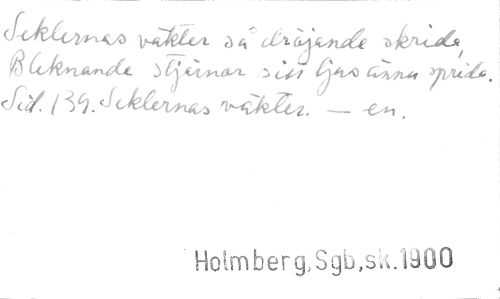 Seklernas väkter så dröjande skrida,
Bleknande stjärnor sitt ljus ännu sprida.
Sid. 139. Seklernas väkter. — en.
Holmberg, Sgb, sk. 1900